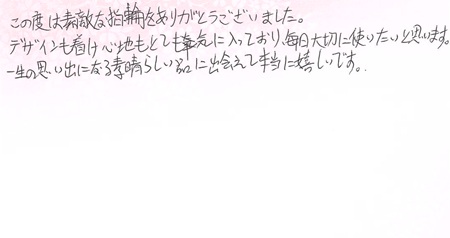 この度は素敵な指輪をありがとうございました。
デザインも着け心地もとても気に入っており、毎日大切に使いたいと思います。
一生の思い出になる素晴らしい品に出会えて本当に嬉しいです。